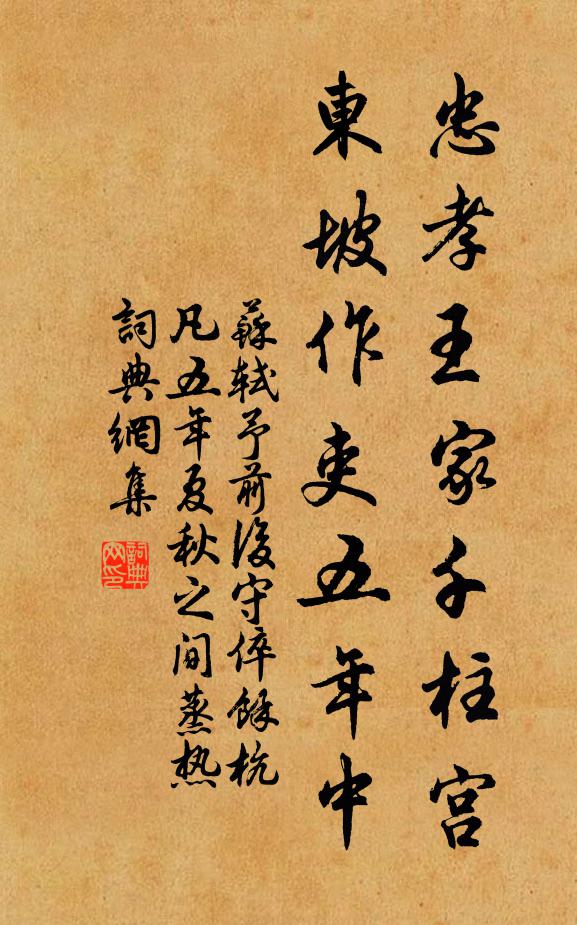 忠孝王家千柱宮
東坡作吏五年中
蘇軾予前後守倅餘杭
凡五年夏秋之間蒸热
詞典網集
詞典网印